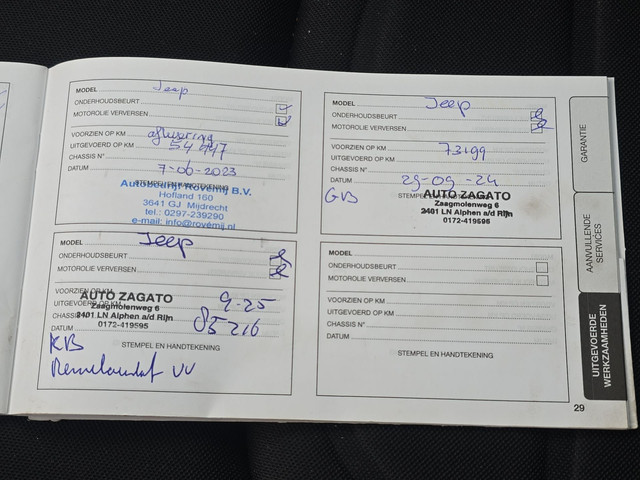 MODEL Jeep
ONDERHOUDSBEURT
MOTOROLIE VERVERSEN
VOORZIEN OP KM aflevering
UITGEVOERD OP KM 54 447
CHASSIS N°
DATUM 7-06-2023
STEMPEL EN HANDTEKENING
Autobedrijf Rovemij B.V.
Hofland 160
3641 GJ Mijdrecht
tel.: 0297-239290
e-mail: info@rovemij.nl
MODEL Jeep
ONDERHOUDSBEURT
MOTOROLIE VERVERSEN
VOORZIEN OP KM
UITGEVOERD OP KM 73199
CHASSIS N°
DATUM 29-09-24
STEMPEL EN HANDTEKENING
GB
AUTO ZAGATO
Zaagmolenweg 6
2401 LN Alphen a/d Rijn
0172-419595
MODEL Jeep
ONDERHOUDSBEURT
MOTOROLIE VERVERSEN
VOORZIEN OP KM
UITGEVOERD OP KM 9-25
CHASSIS N° 85216
DATUM
AUTO ZAGATO
Zaagmolenweg 6
2401 LN Alphen a/d Rijn
0172-419595
KB
STEMPEL EN HANDTEKENING
VV
MODEL
ONDERHOUDSBEURT
MOTOROLIE VERVERSEN
VOORZIEN OP KM
UITGEVOERD OP KM
CHASSIS N°
DATUM
STEMPEL EN HANDTEKENING
GARANTIE
AANVULLENDE
SERVICES
UITGEVOERDE
WERKZAAMHEDEN
29